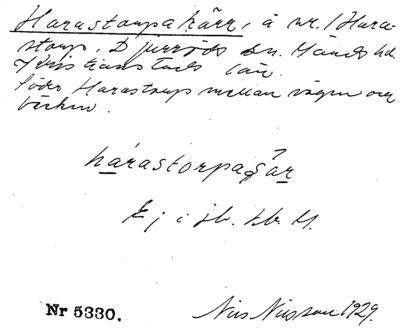 Harastorpakärr, å nr. 1 Hara-
storp, Djurröds sn. Gärds hd.
Kristianstads län.
Söder Harastorp mellan vägen och
bäcken.
hárastorpaçàr
Ej i jb.
Nr 5330.
Nils Nilsson 1929.